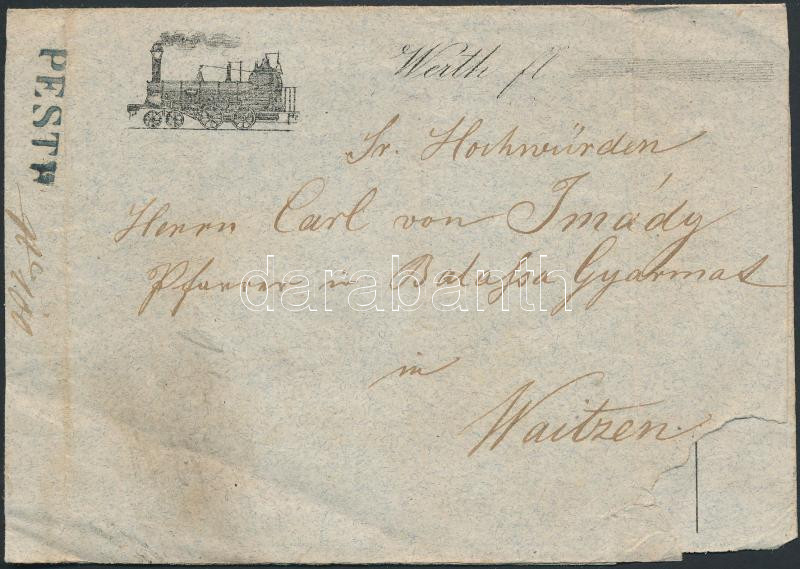 PESTH
Werth fl
Sr. Hochwürden
Herrn Carl von Imády
Pfarrer in Balassa Gyarmat
in
Waitzen.
darabanth